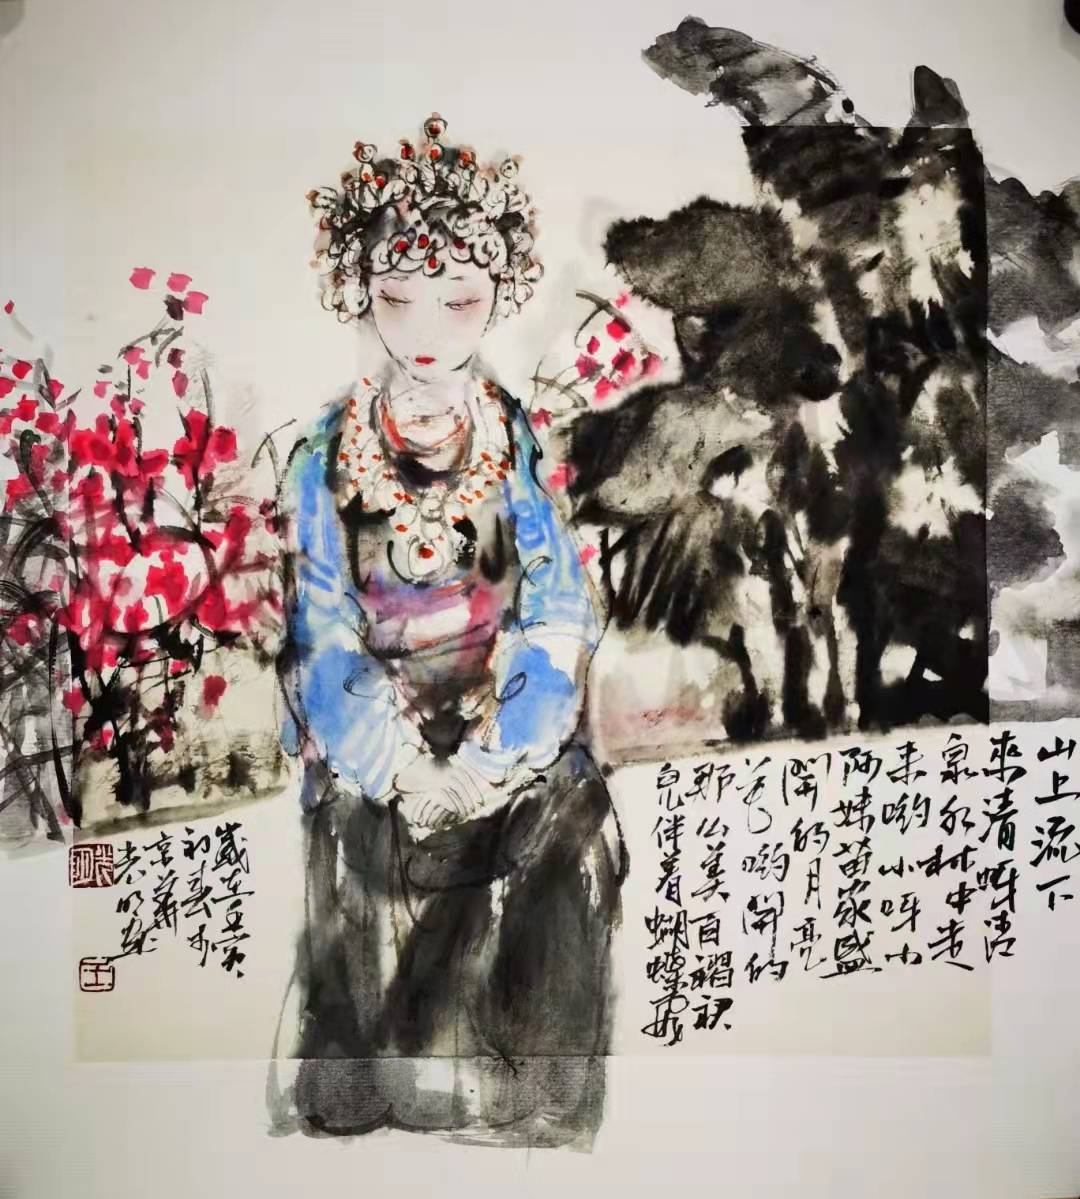 山上流下
來清呀清
泉水林中走
来哟小呀小
阿妹苗家盛
開的月亮
花哟開的
那么美百褶裙
兒伴着蝴蝶飛
歲在壬寅
初春於
京華
光明畫
王